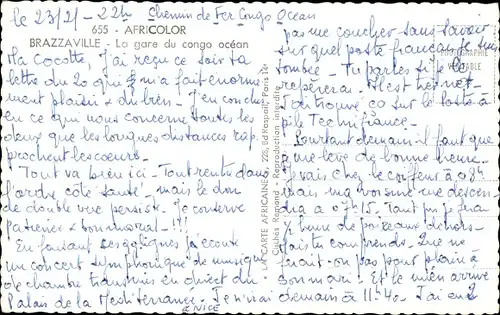 le 23/2/ - 22h Chemin de Fer Congo Océan
655 - AFRICOLOR
BRAZZAVILLE - La gare du congo océan
Ma Cocotte, J'ai reçu ce soir ta
lettre du 20 qui m'a fait enormé
ment plaisir & du bien. J'en conclus
en ce qui nous concerne toutes les
deux que les longues distances rap
prochent les coeurs.
Tout va bien ici - Tout rentre dans
l'ordre côté santé, mais le don
de double vue persiste. Je conserve
patience & bon moral - !!!
En faisant ses églignes j'écoute
un concert symphonique de musique
de chambre transmis en direct du
Palais de la Méditerranée. Je n'irai demain à 11h40. J'ai eu
à NICE
LA CARTE AFRICAINE, 220, Bd Raspail, Paris 14e
Clichés Regnard - Reproduction interdite
pas me coucher sans savoir
sur quel poste français je suis
tombée - Tu parles si je la
repérerai. Il est très net.
J'ai trouvé ça sur le poste à
piles Technifrance.
Pourtant demain il faut que
je me lève de bonne heure.
Je vais chez le coiffeur à 08h
mais ma voisine me descen
dra à 07h15. Tant pis je ferai
1/2 heure de poireaux dehors
mais tu comprends. Que ne
ferait-on pas pour plaire à
son mari - Et le mien arrive